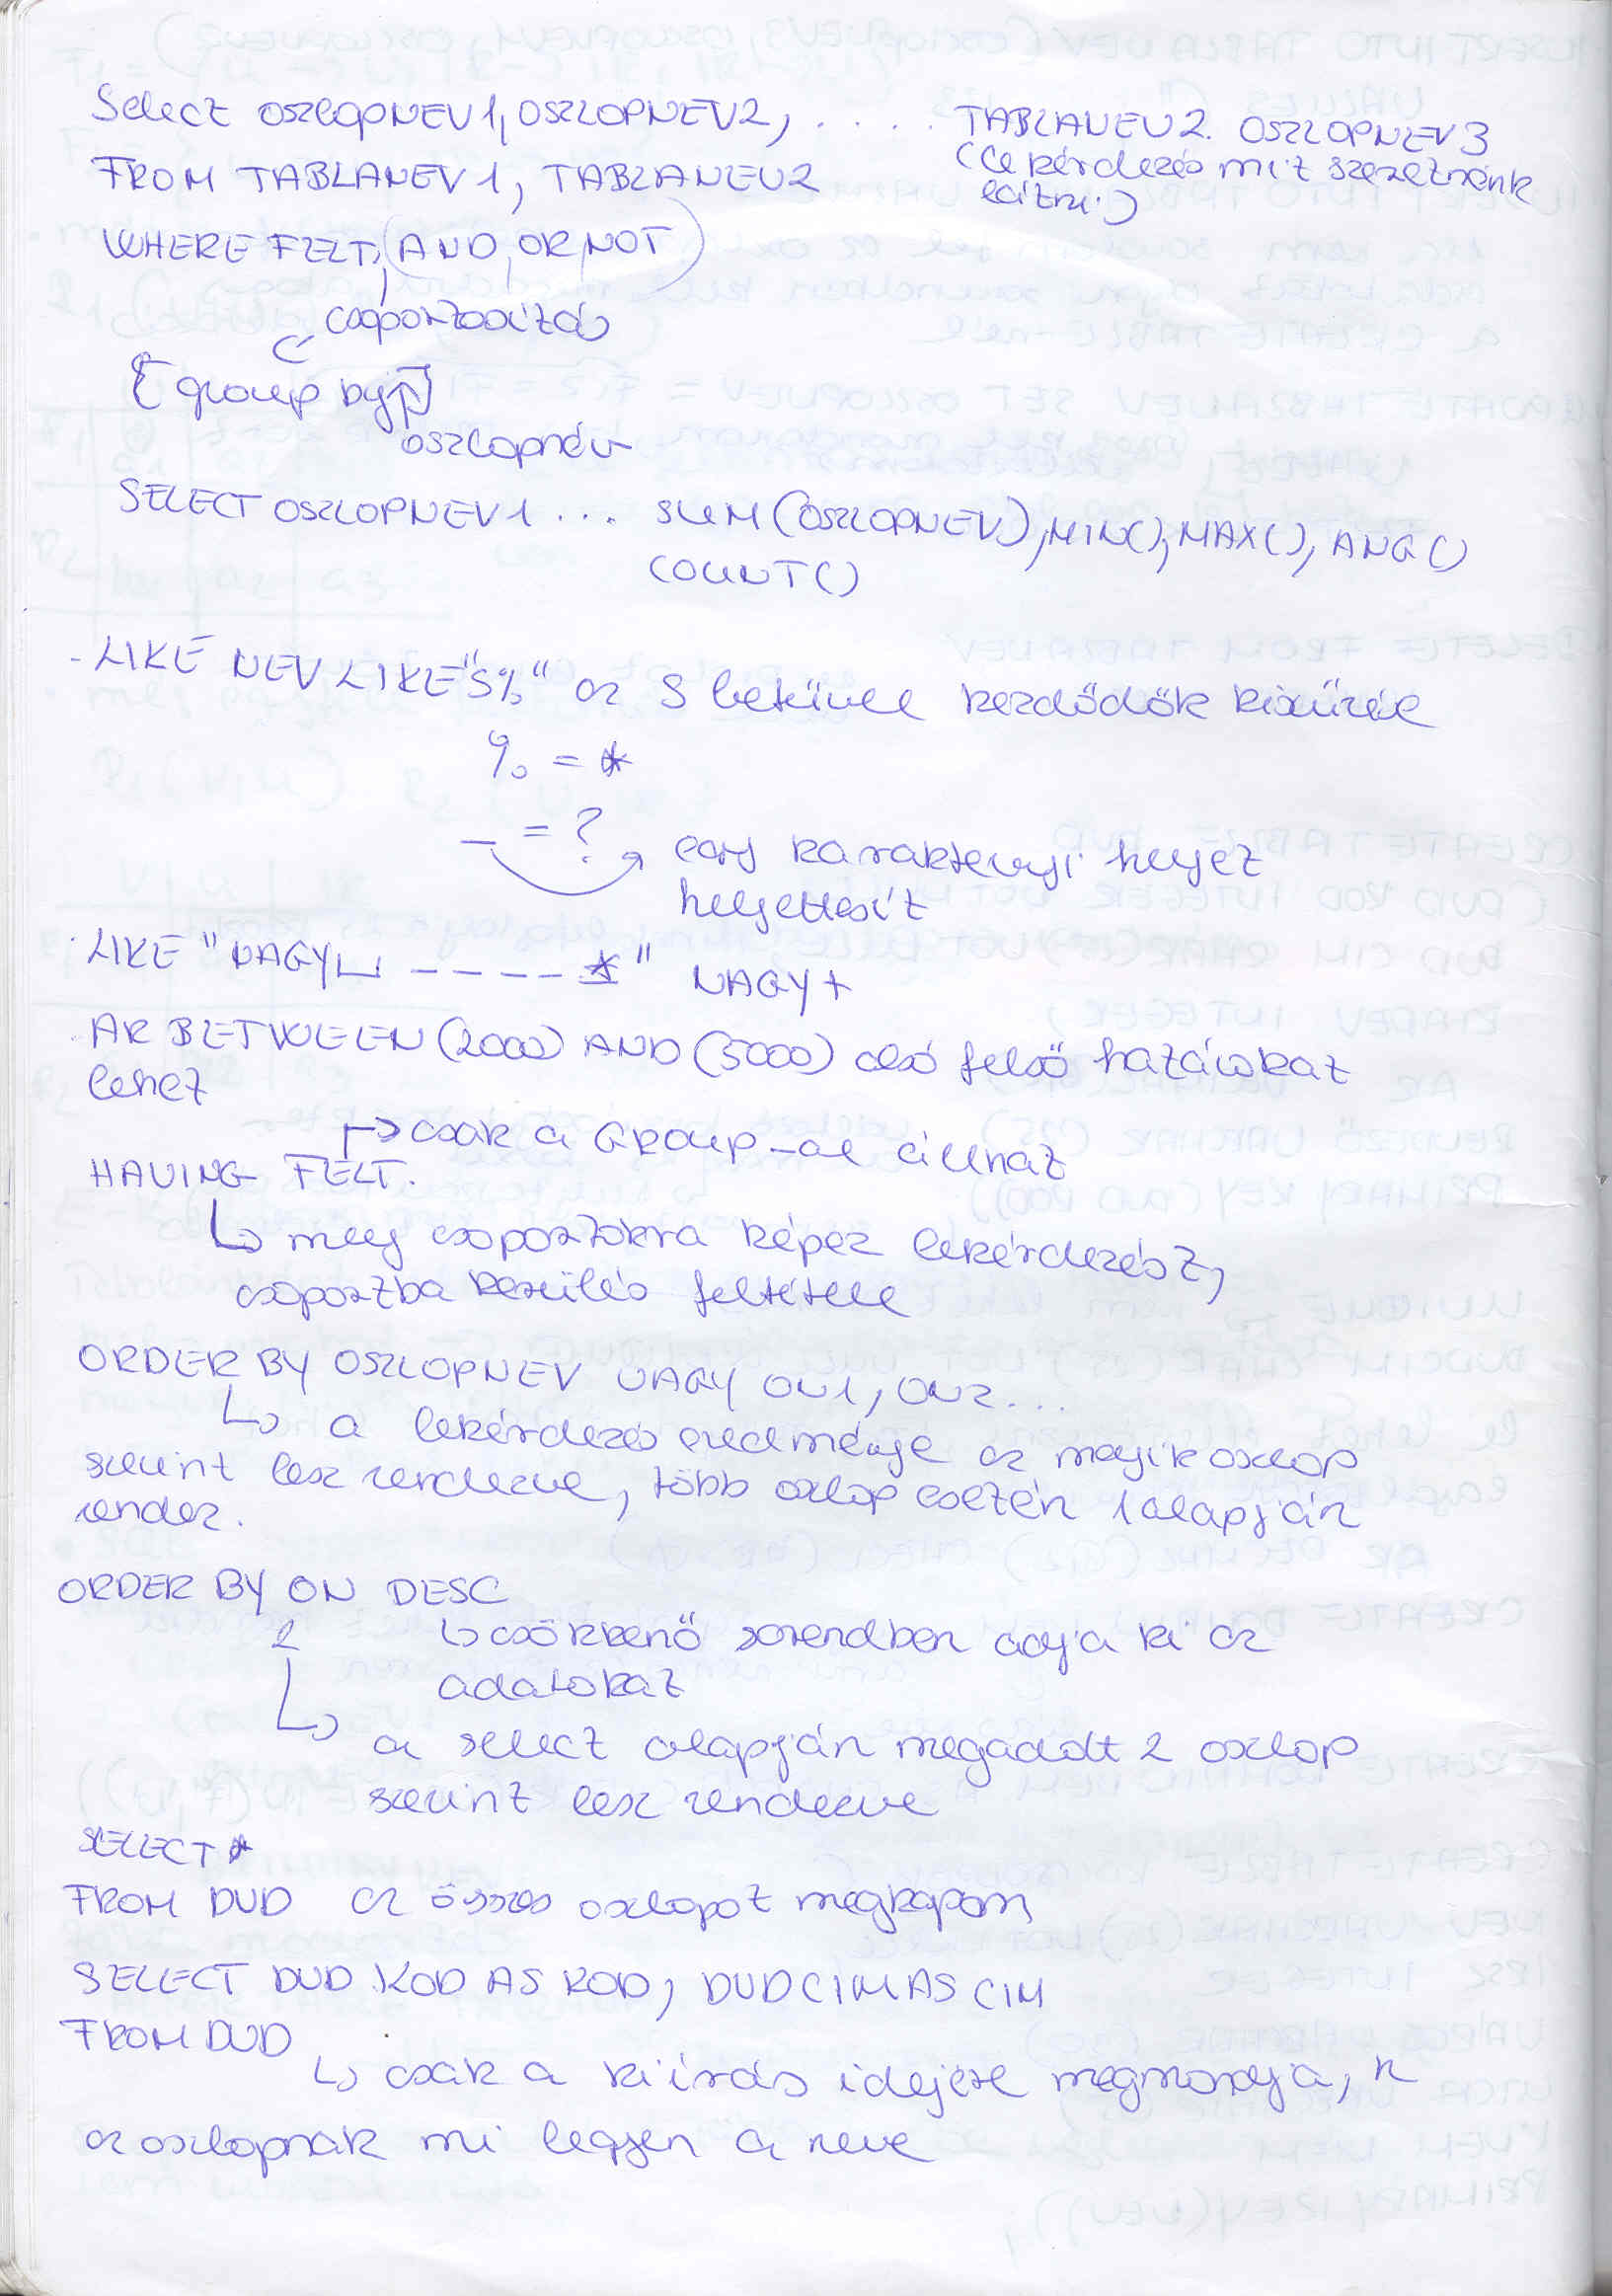 Select OSZLOPNEV1, OSZLOPNEV2, . . . . TABLANEV2. OSZLOPNEV3
FROM TABLANEV1, TABLANEV2 (Lekérdezés mit szeretnénk
látni.)
WHERE FELT, (AND, OR, NOT)
csoportosítás
[group by]
oszlopnév
SELECT OSZLOPNEV1 ... SUM(OSZLOPNEV), MIN(), MAX(), ANG()
COUNT()
- LIKE NEV LIKE "S%" az S betűvel kezdődők kiszűrése
% = *
_ = ? egy karakternyi helyet
helyettesít
LIKE "NAGY␣ _ _ _ _ *" NAGY+
AR BETWEEN (2000) AND (5000) alsó felső határokat
lehet
→ csak a GROUP-al állhat
HAVING FELT.
↳ mely csoportokra képez lekérdezést,
csoportba kerülés feltétele
ORDER BY OSZLOPNEV VAGY ON1, ON2...
↳ a lekérdezés eredménye az melyik oszlop
szerint lesz rendezve, több oszlop esetén 1 alapján
rendez.
ORDER BY ON DESC
2 ↳ csökkenő sorrendben adja ki az
adatokat
↳ a select alapján megadott 2 oszlop
szerint lesz rendezve
SELECT *
FROM DVD az összes oszlopot megkapom
SELECT DVD KOD AS KOD, DVDCIM AS CIM
FROM DVD
↳ csak a kiírás idejére megmondja,
az oszlopnak mi legyen a neve